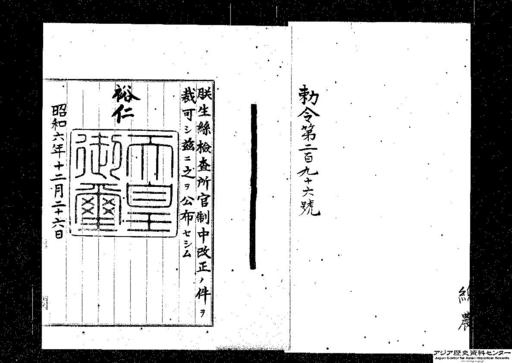 勅令第二百九十六號
朕生絲檢査所官制中改正ノ件ヲ
裁可シ茲ニ之ヲ公布セシム
裕仁
天皇
御璽
昭和六年十二月二十六日
アジア歴史資料センター
Japan Center for Asian Historical Records